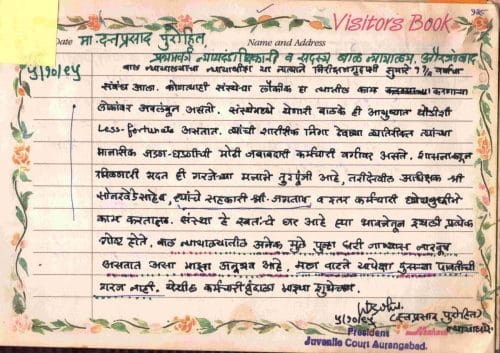 Visitors Book
925
Date मा. दत्तप्रसाद पुरोहित, Name and Address
प्रथमवर्ग न्यायदंडाधिकारी व सदस्य बाल न्यायालय, औरंगाबाद
५/१०/९५ बाल न्यायालयाचा न्यायाधीश या नात्याने निरीक्षणगृहाशी सुमारे १½ वर्षाचा
संबंध आला. कोणत्याही संस्थेचा लौकिक हा त्यातील काम करणाऱ्या
लोकांवर अवलंबून असतो. संस्थेमध्ये येणारी बालके ही आयुष्यात थोडीशी
Less-fortunate असतात. त्यांची शारीरिक निगा ठेवण्या व्यतिरीक्त त्यांच्या
मानसिक जडण-घडणीची मोठी जबाबदारी कर्मचारी वर्गावर असते. शासनाकडून
मिळणारी मदत ही गरजेच्या मनाने तुटपुंजी आहे, तरीदेखील अधिक्षक श्री
सोनवणे साहेब, त्यांचे सहकारी श्री. जगताप व इतर कर्मचारी ध्येयबुध्दीने
काम करतात. संस्था हे स्वतःचे घर आहे ह्या भावनेतून इथली प्रत्येक
गोष्ट होते. बाल न्यायालयातील अनेक मुले पुन्हा घरी जाण्यास नाखूष
असतात असा माझा अनुभव आहे. मला वाटते यापेक्षा दुसऱ्या पावतीची
गरज नाही. येथील कर्मचारी वृंदाला माझ्या शुभेच्छा.
५/१०/९५ (दत्तप्रसाद पुरोहित)
President न्यायाधीश
Juvenile Court Aurangabad.